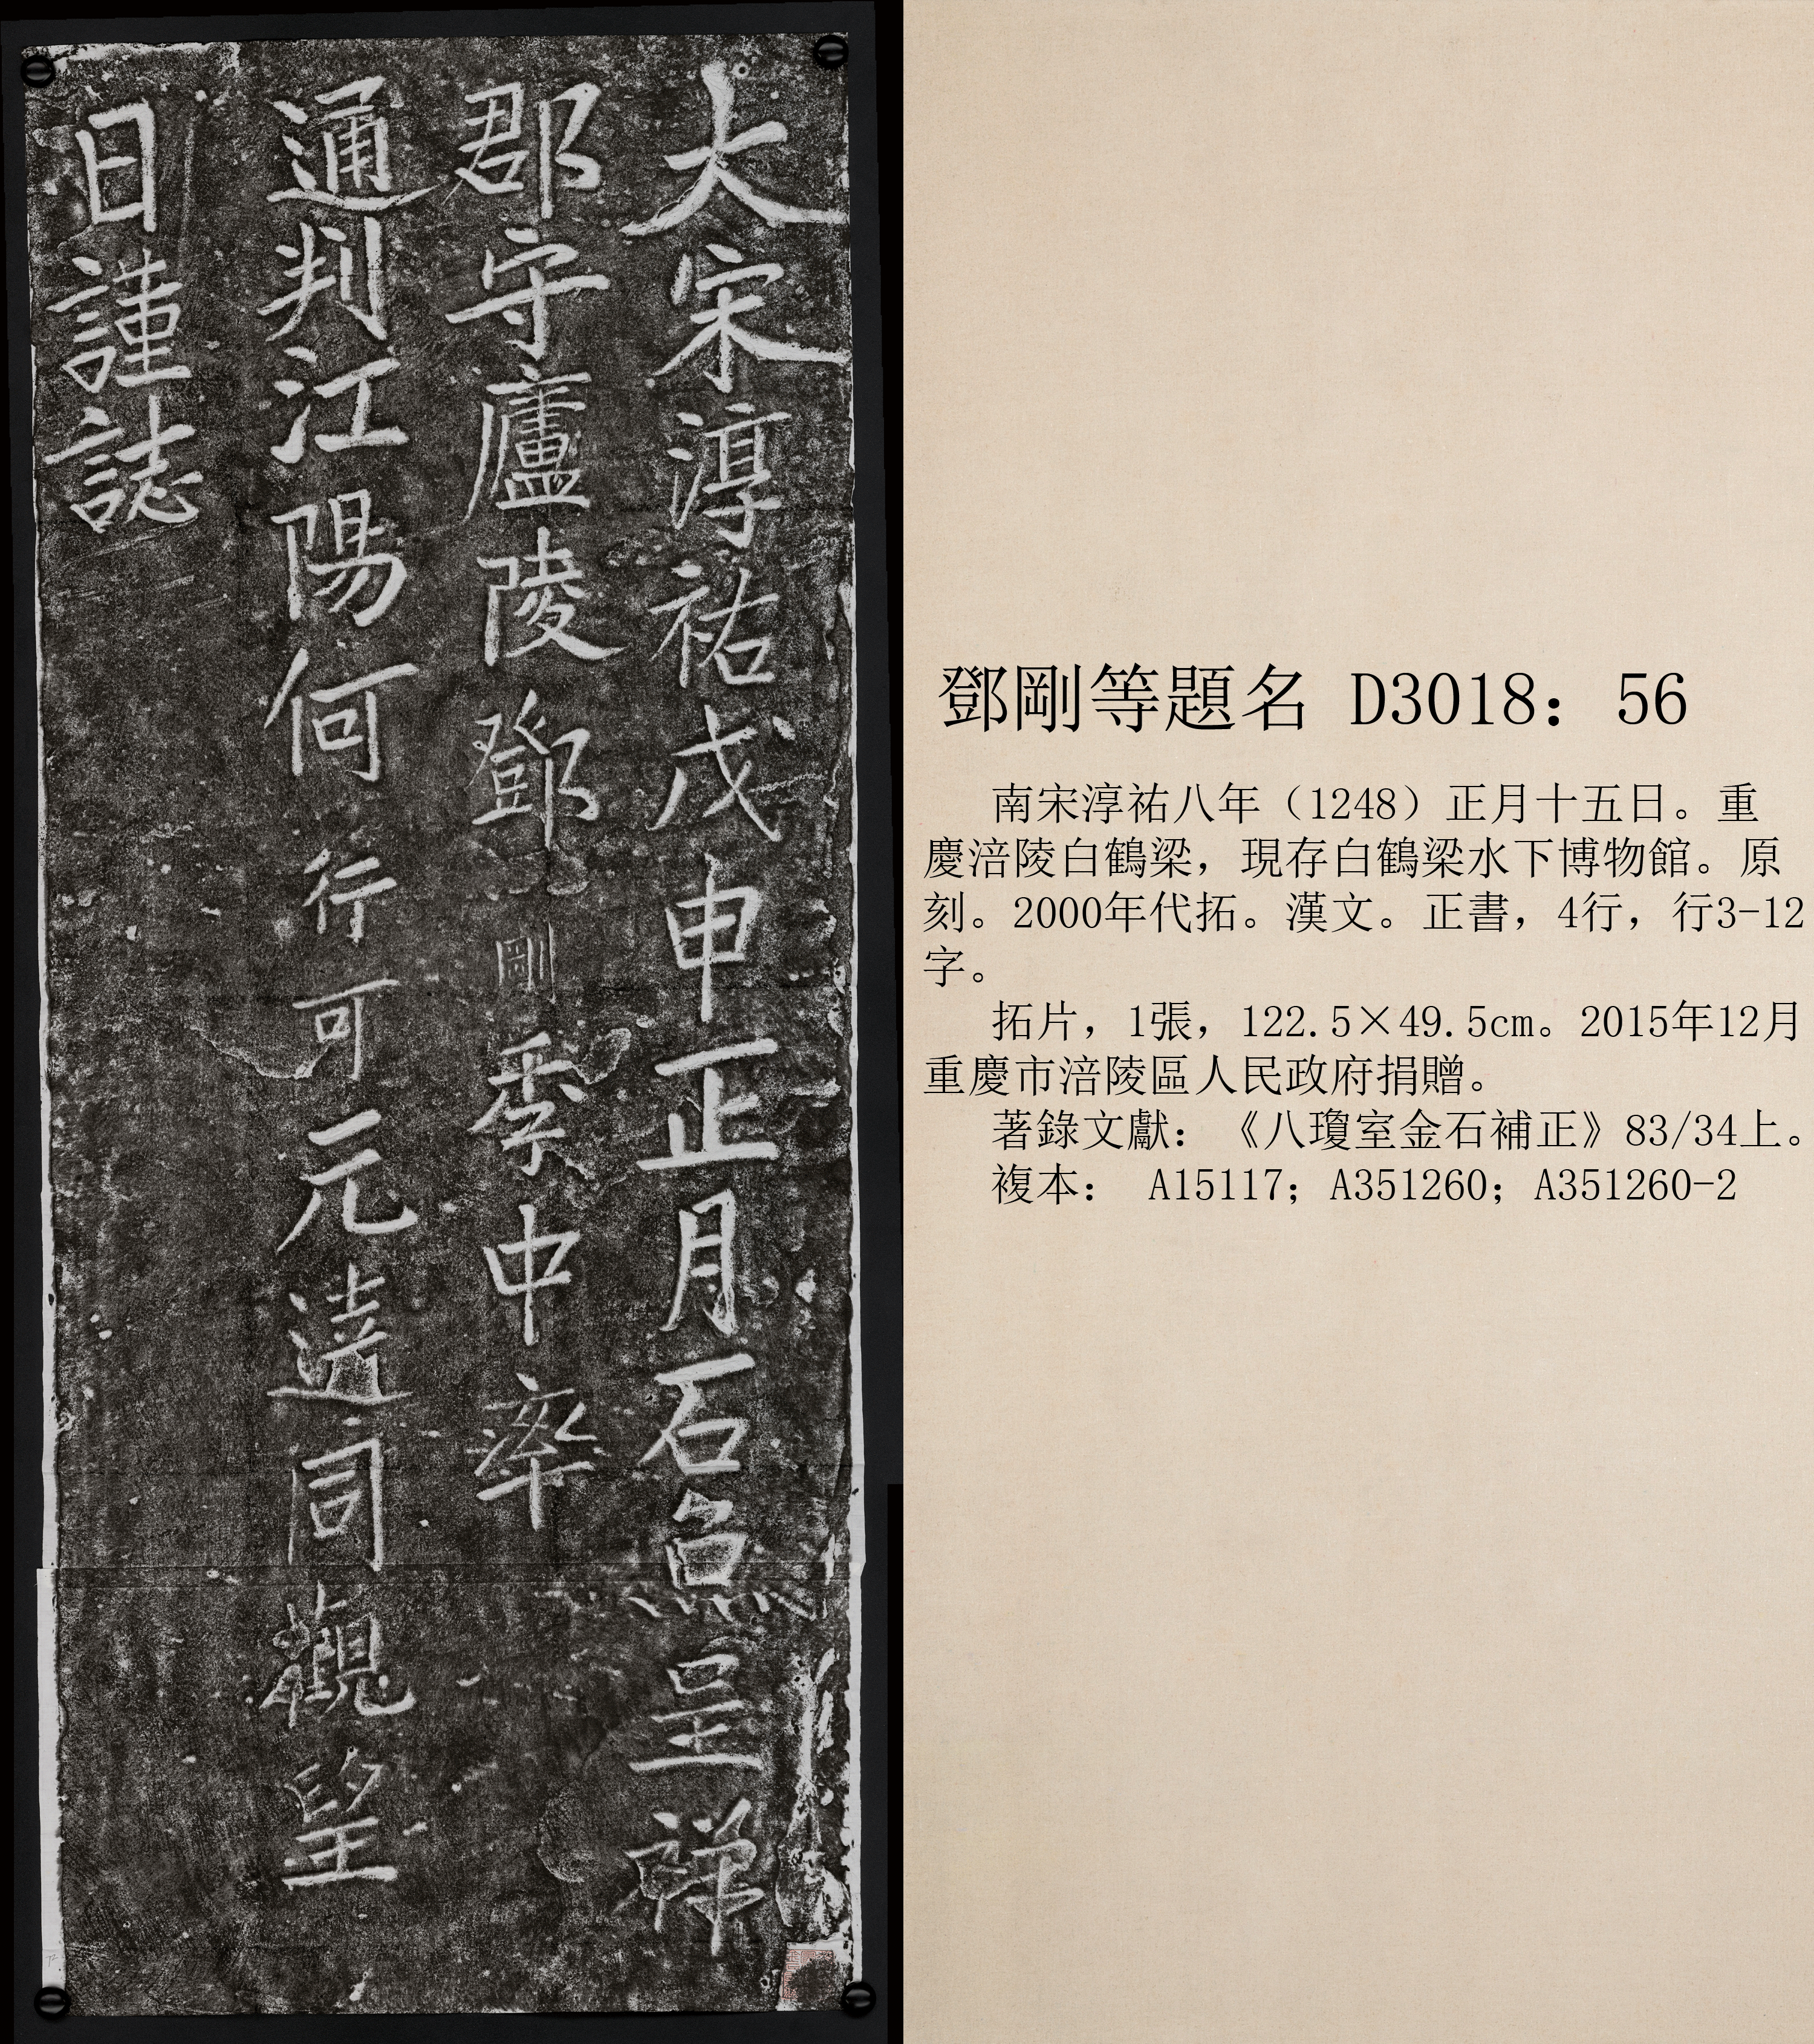 大宋淳祐戊申正月石魚呈祥
郡守廬陵鄧剛季中率
通判江陽何行可元達同觀望
日謹誌
鄧剛等題名 D3018：56
南宋淳祐八年（1248）正月十五日。重
慶涪陵白鶴梁，現存白鶴梁水下博物館。原
刻。2000年代拓。漢文。正書，4行，行3-12
字。
拓片，1張，122.5×49.5cm。2015年12月
重慶市涪陵區人民政府捐贈。
著錄文獻：《八瓊室金石補正》83/34上。
複本： A15117；A351260；A351260-2